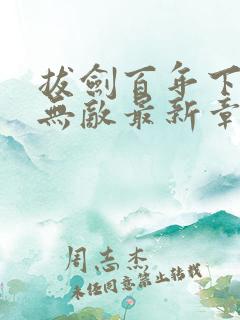 拔劍百年下
無敵最新章
周志杰
未经同意禁止转载